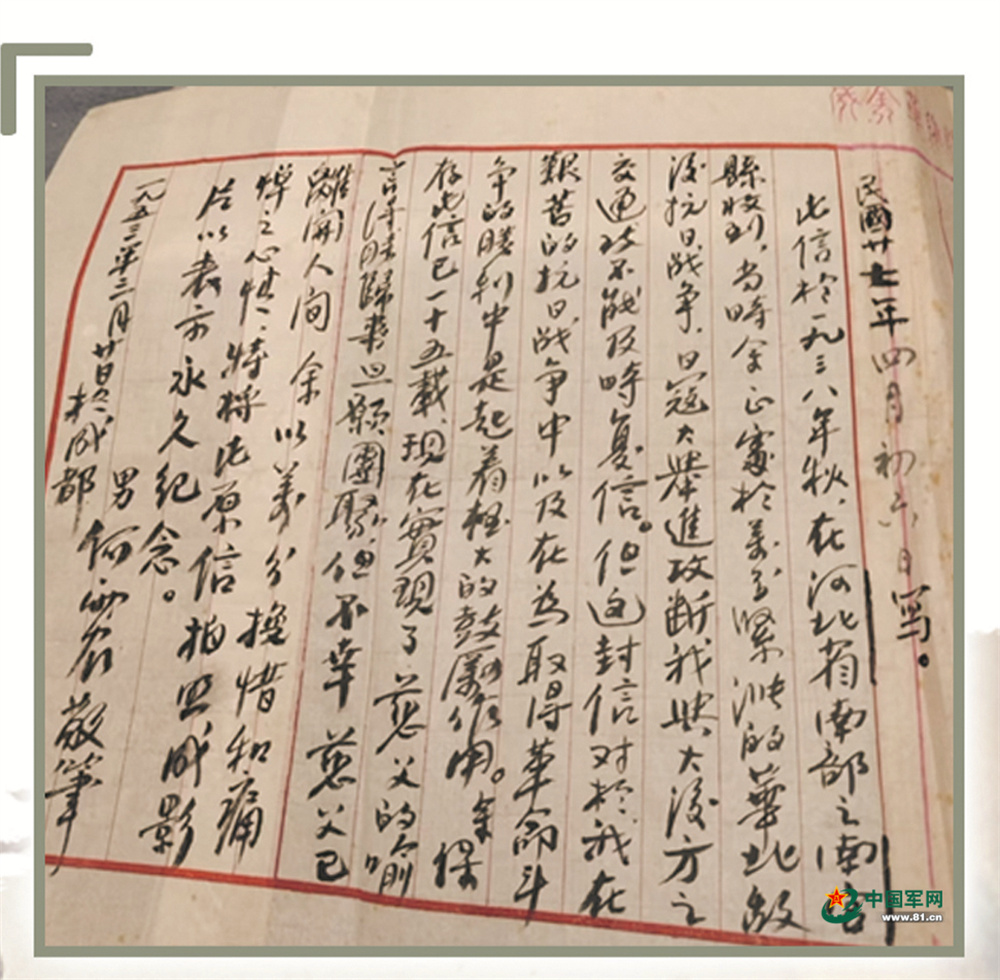 民國廿七年四月初六日写。
此信於一九三八年秋，在河北省南部之南宫
縣收到，当時余正處於萬分緊張的華北敌
後抗日战争，日冦大舉進攻断我與大後方之
交通故不能及時復信。但这封信对於我在
艱苦的抗日战争中以及在为取得革命斗
争的勝利中是起着極大的鼓勵作用。余保
存此信已一十五載，现在實現了慈父的喻
言得胜歸来团聚，但不幸慈父已
離開人间 余以萬分换惜和痛
悼之心情，特将此原信拍照成影
片以表示永久纪念。
男何敬筆
一九五三年三月廿日於成都
中国军网
www.81.cn